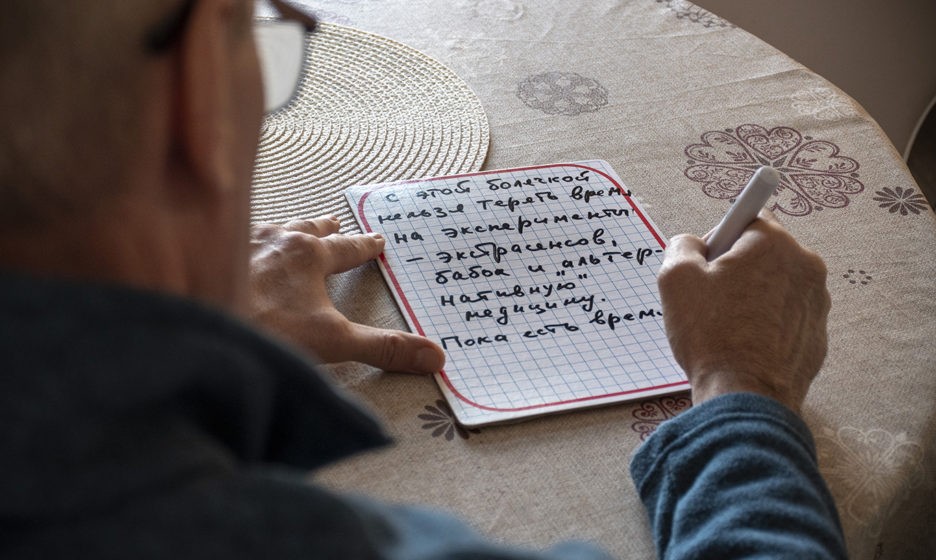 с этой болячкой
нельзя терять время
на эксперименты
– экстрасенсов,
бабок и „альтер-
нативную"
медицину.
Пока есть время